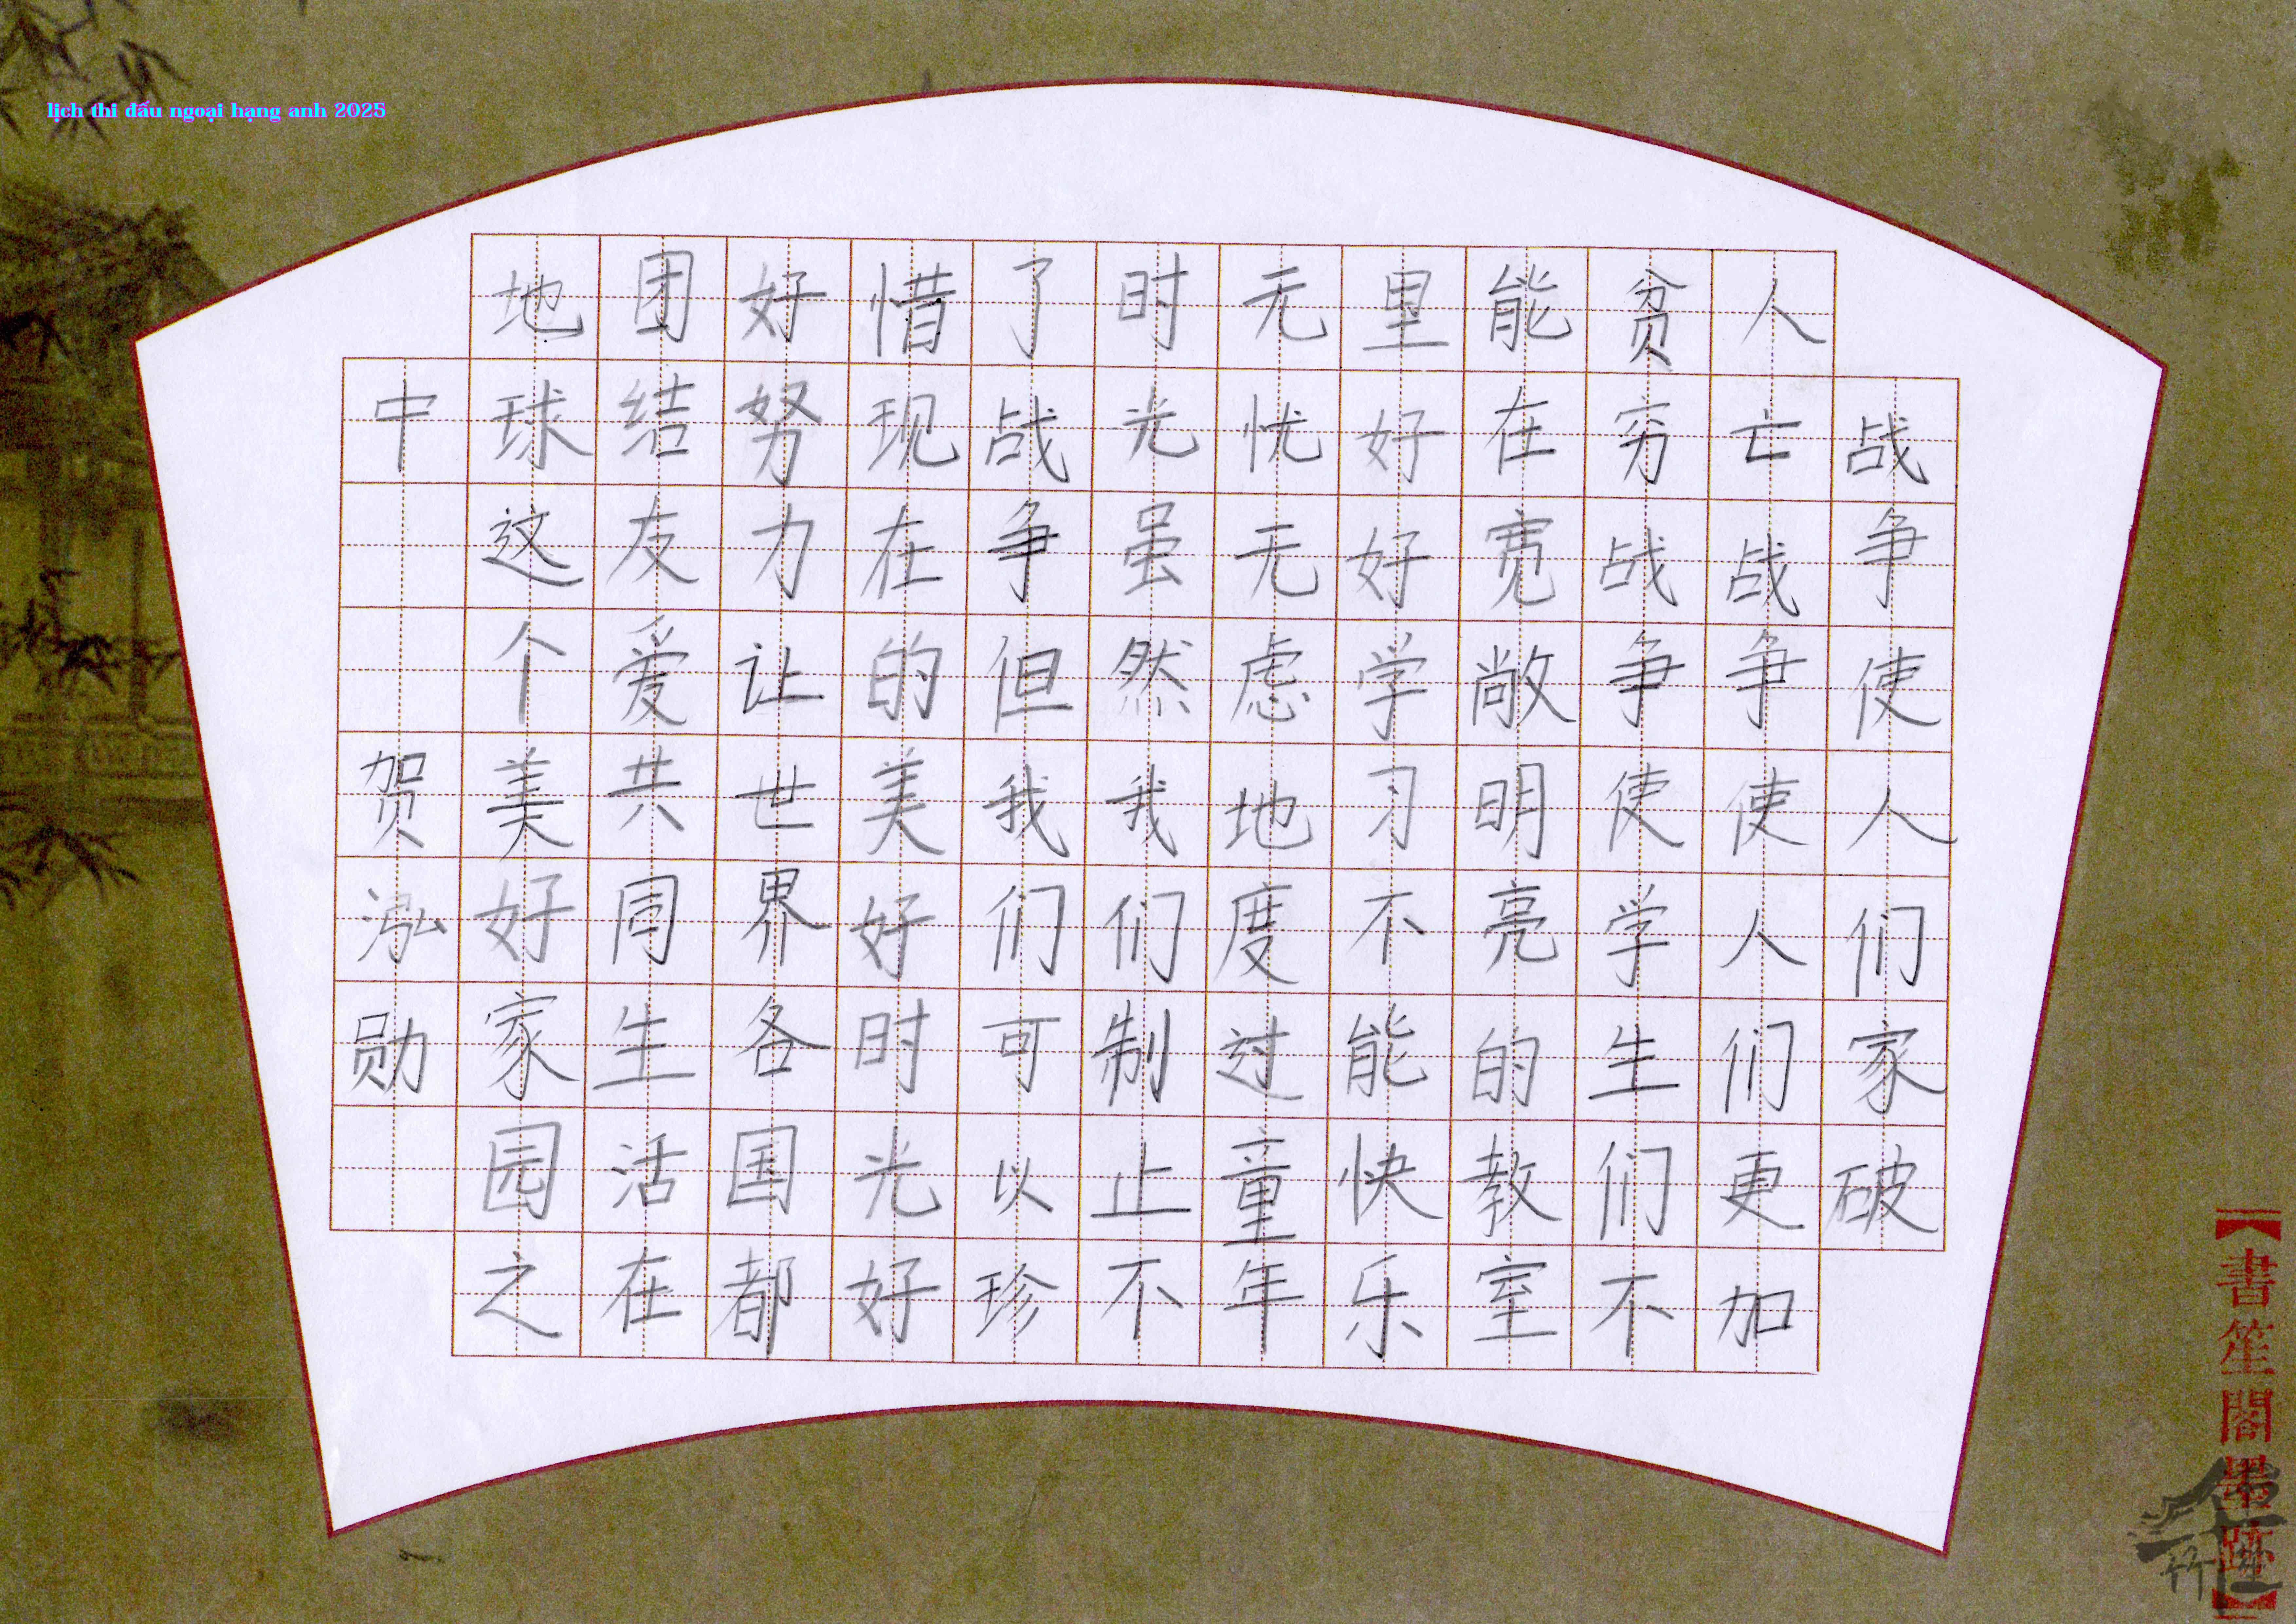 lịch thi đấu ngoại hạng anh 2025
战争使人们家破
人亡战争使人们更加
贫穷战争使学生们不
能在宽敞明亮的教室
里好好学习不能快乐
无忧无虑地度过童年
时光虽然我们制止不
了战争但我们可以珍
惜现在的美好时光好
好努力让世界各国都
团结友爱共同生活在
地球这个美好家园之
中 贺泓勋
【書笙閣墨跡】